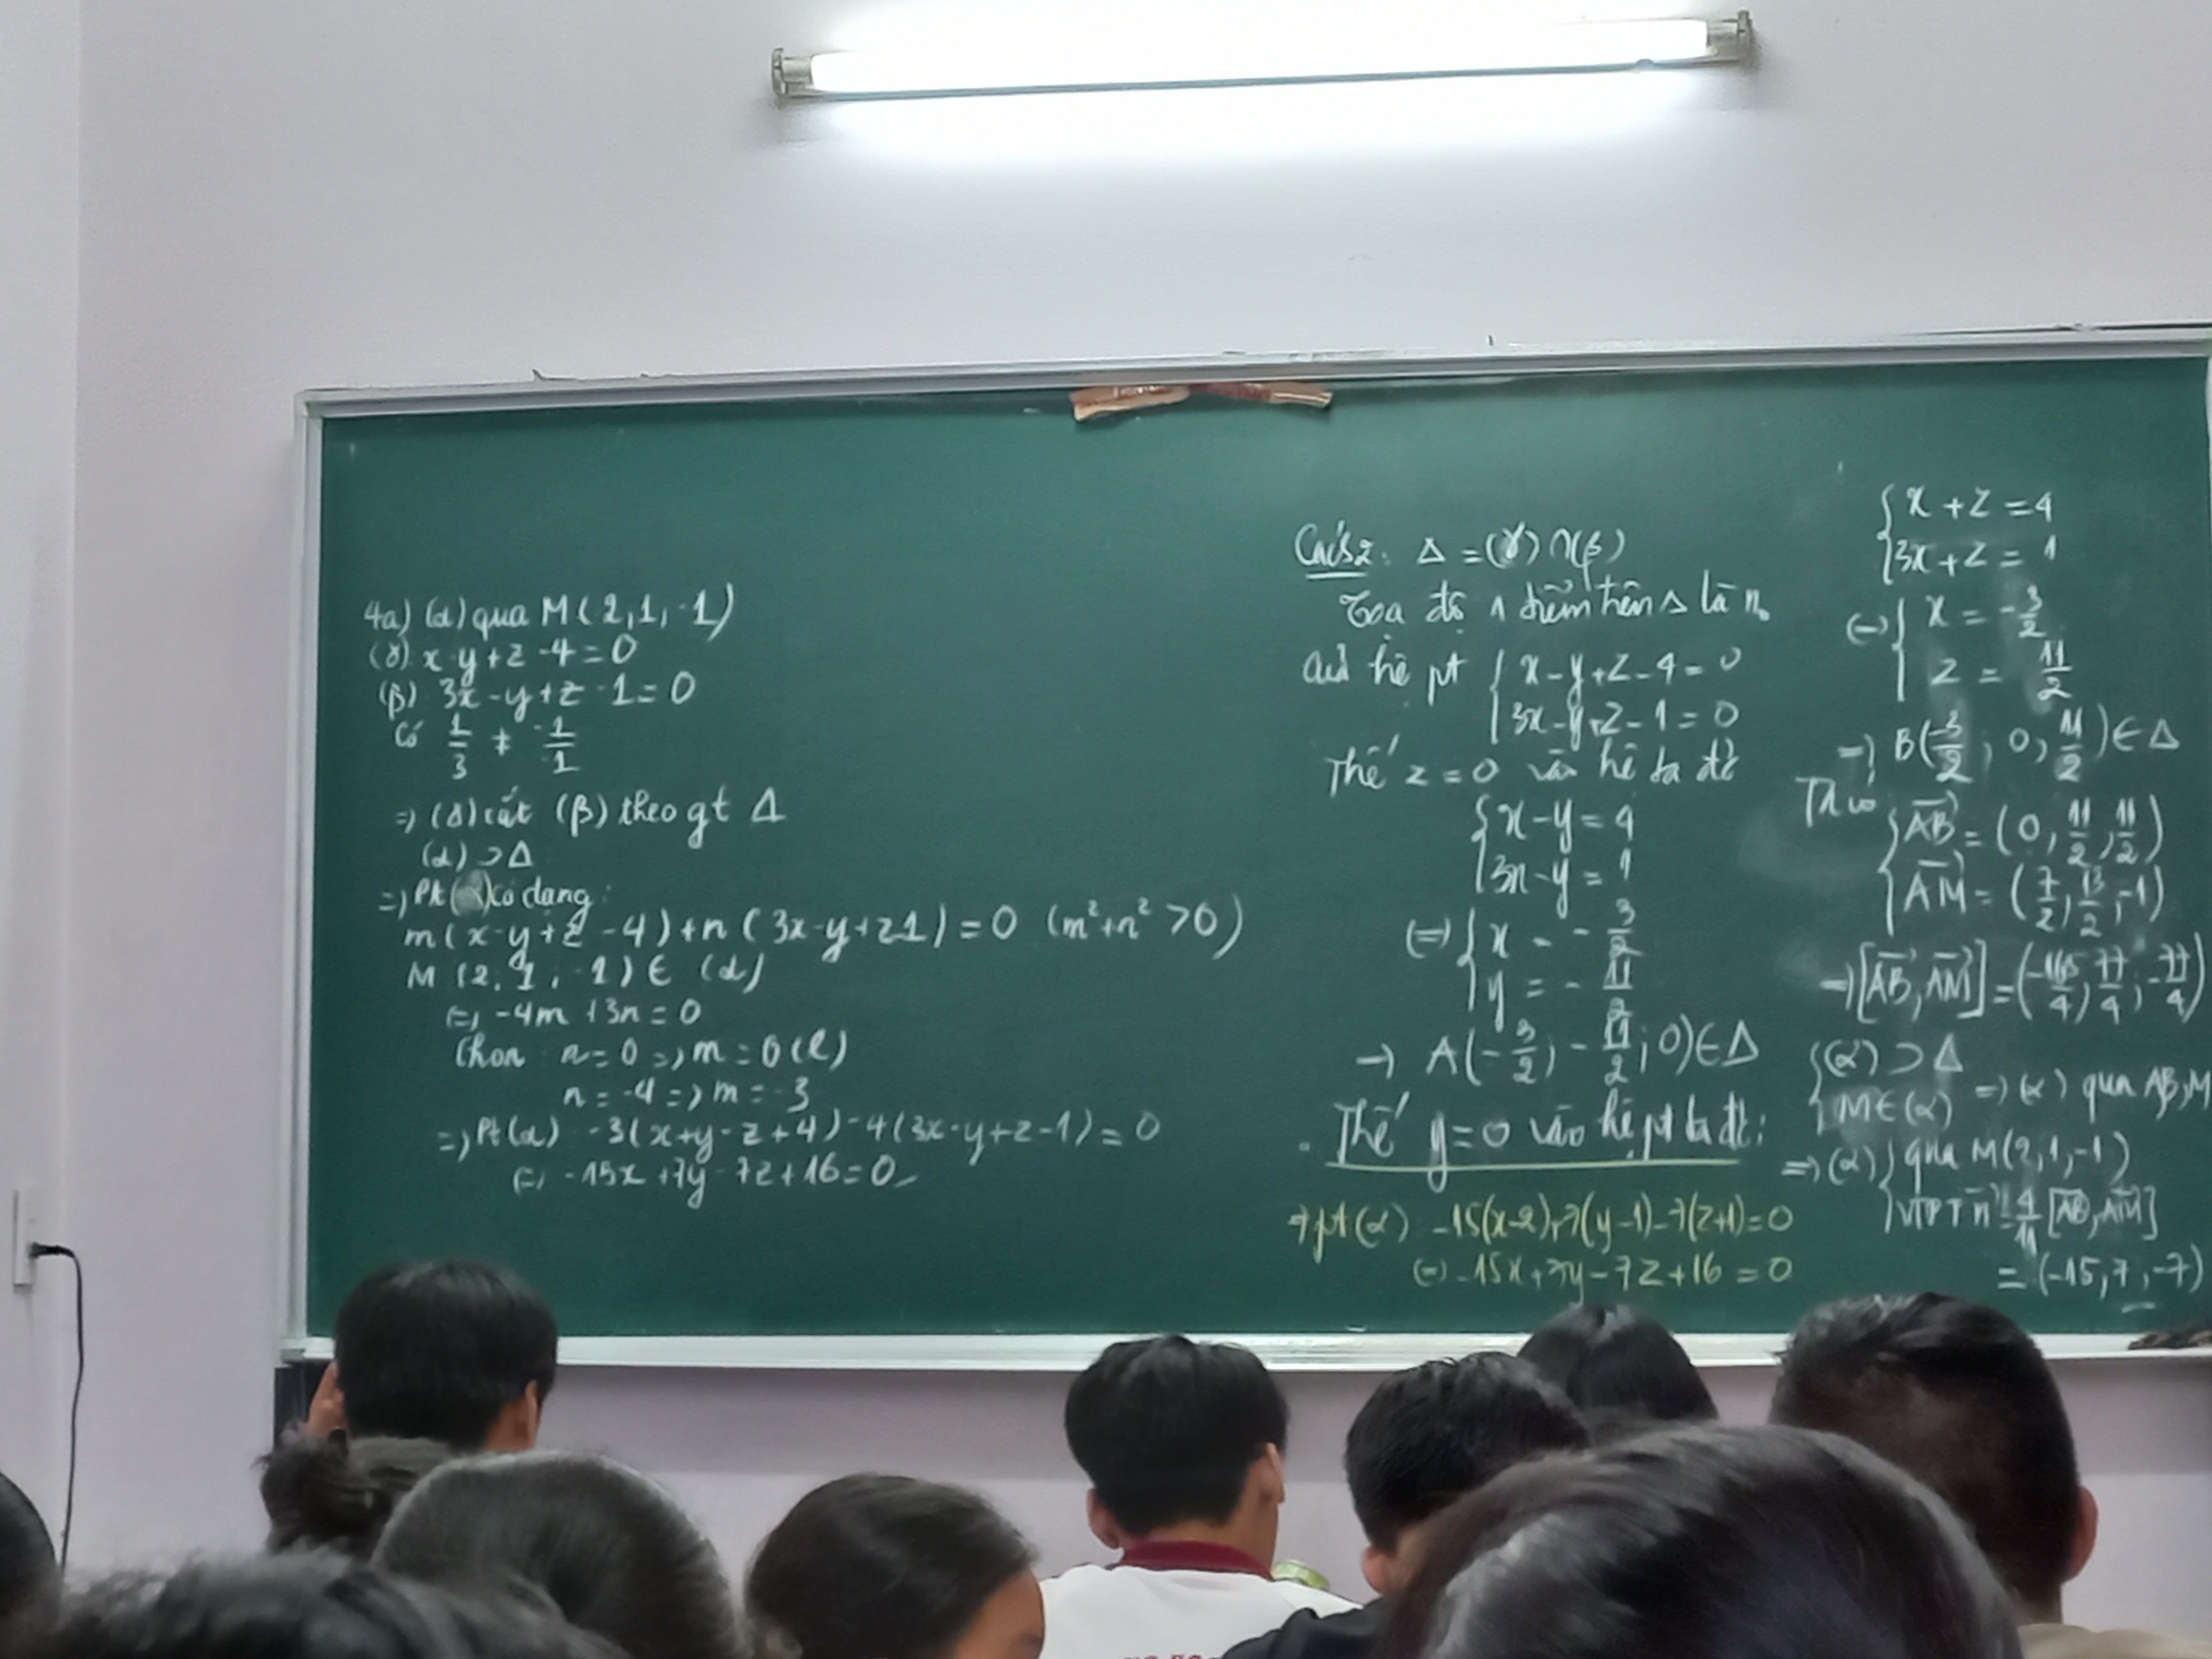 4a) (α) qua M(2,1,-1)
(γ) x-y+z-4=0
(β) 3x-y+z-1=0
Có 1/3 ≠ -1/-1
=> (γ) cắt (β) theo gt Δ
(α) ⊃ Δ
=> Pt (α) có dạng:
m(x-y+z-4)+n(3x-y+z-1)=0 (m²+n²>0)
M(2,1,-1) ∈ (α)
(=) -4m+3n=0
Chọn n=0 => m=0 (l)
n=-4 => m=-3
=> Pt(α) -3(x+y-z+4)-4(3x-y+z-1)=0
(=) -15x+7y-7z+16=0
Cách2: Δ=(γ)∩(β)
Tọa độ 1 điểm trên Δ là no
của hệ pt { x-y+z-4=0
3x-y+z-1=0
Thế z=0 vào hệ ta đc
{ x-y=4
3x-y=1
(=) { x=-3/2
y=-11/2
-> A(-3/2, -11/2, 0)∈Δ
Thế y=0 vào hệ pt ta đc:
=> pt(α): -15(x-2)+7(y-1)-7(z+1)=0
(=) -15x+7y-7z+16=0
{ x+z=4
3x+z=1
(=) { x=-3/2
z=11/2
=> B(-3/2, 0, 11/2)∈Δ
{ AB=(0, 11/2, 11/2)
AM=(7/2, 13/2, -1)
->[AB, AM]=(-165/4, 77/4, -77/4)
{ (α)⊃Δ
M∈(α) => (α) qua AB,M
=> (α) { qua M(2,1,-1)
VTPT n=4/11 [AB, AM]
=(-15,7,-7)